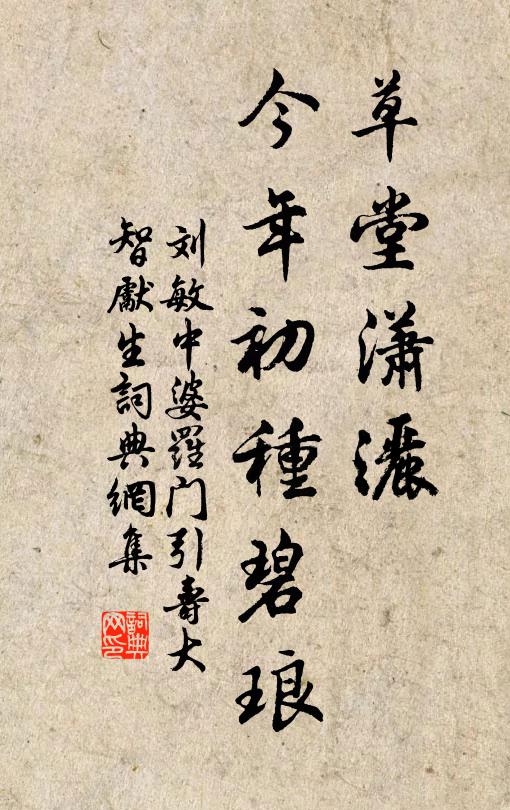 草堂瀟灑
今年初種碧琅
刘敏中婆羅门引壽大
智獻生詞典網集
詞典
网印